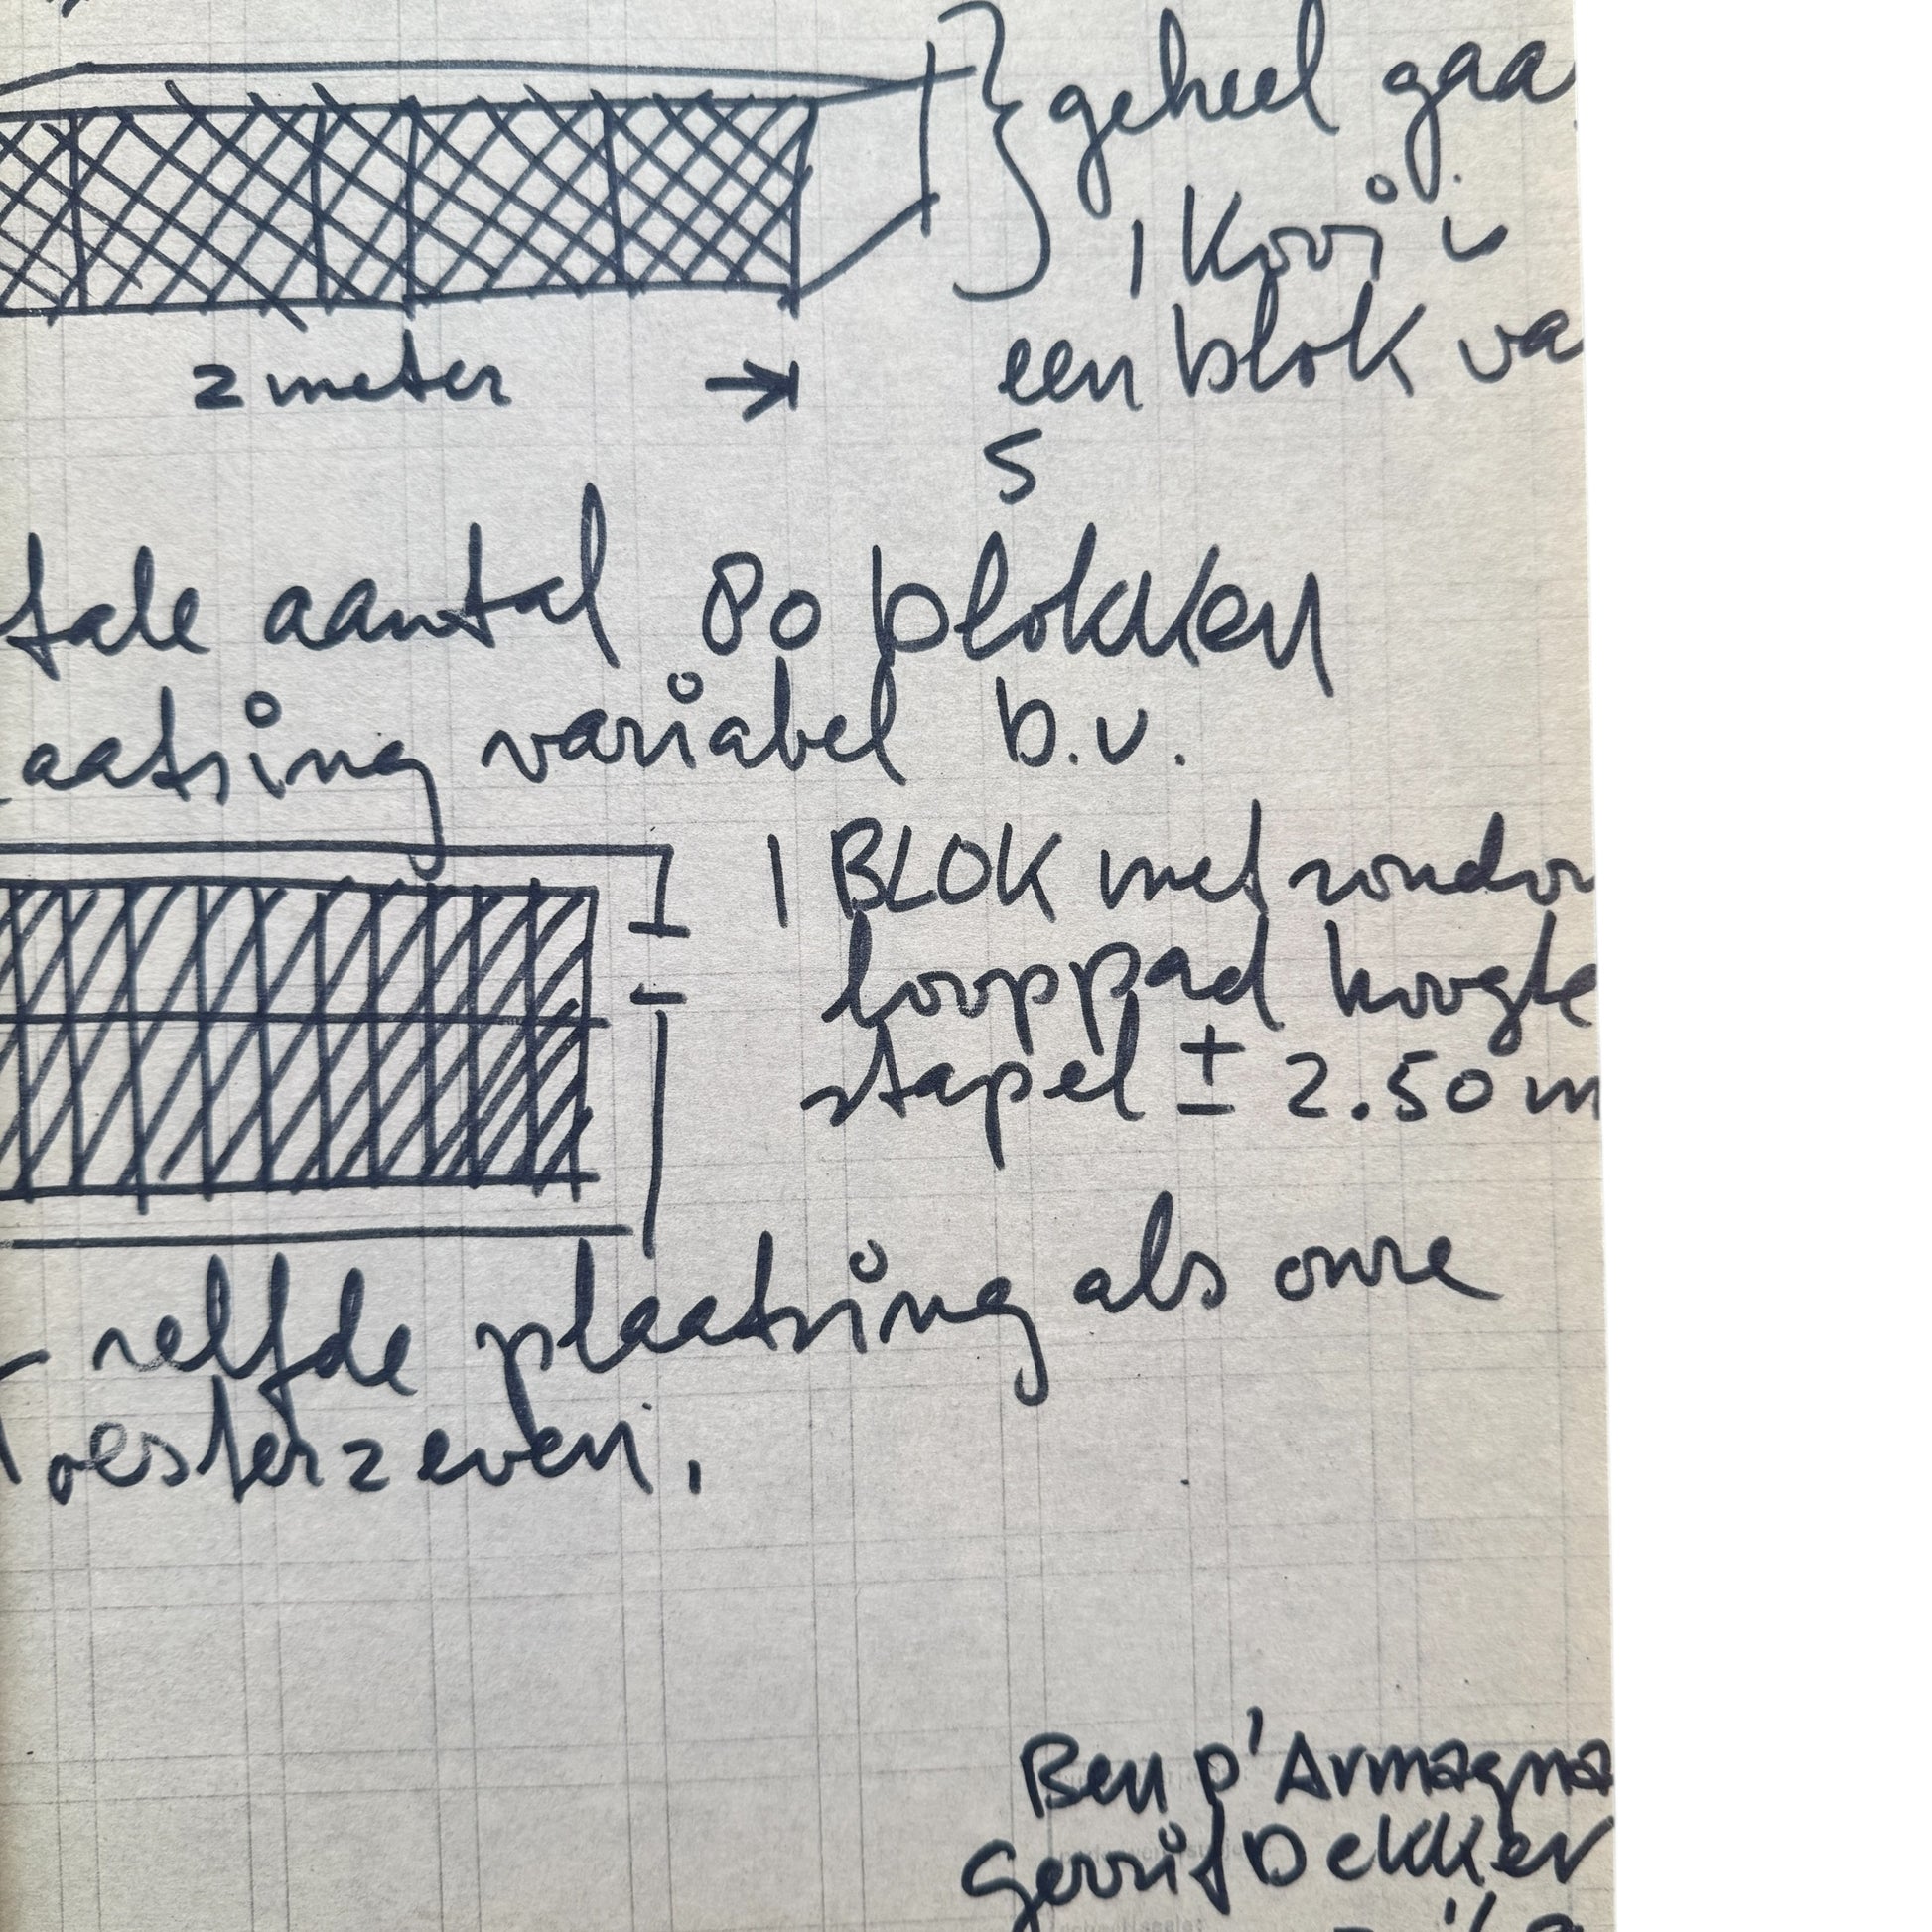 geheel gaa
1 Kooi i
een blok va
5
2 meter
tale aantal 80 blokken
aatsing variabel b.v.
1 BLOK met rondo
looppad hoogte
stapel ± 2.50 m
zelfde plaatsing als onze
oesterzeven.
Ben D'Armagna
Gerrit Dekker